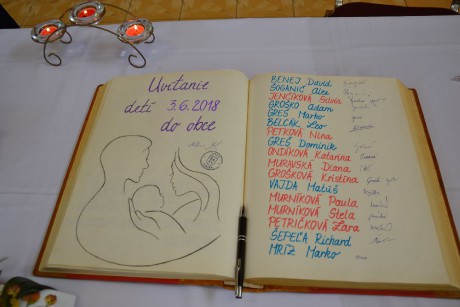 Uvítanie
detí 3.6.2018
do obce
BENEJ David
ŠOGANIČ Alex
JENČÍKOVÁ Silvia
GROŠKO Adam
GREŠ Marko
BELČÁK Leo
PETKOVÁ Nina
GREŠ Dominik
ONDÍKOVÁ Katarína
MURAVSKÁ Diana
GROŠKOVÁ Kristína
VAJDA Matúš
MURNÍKOVÁ Paula
MURNÍKOVÁ Stela
PETRIČKOVÁ Lara
ŠEPEĽA Richard
MRÍZ Marko